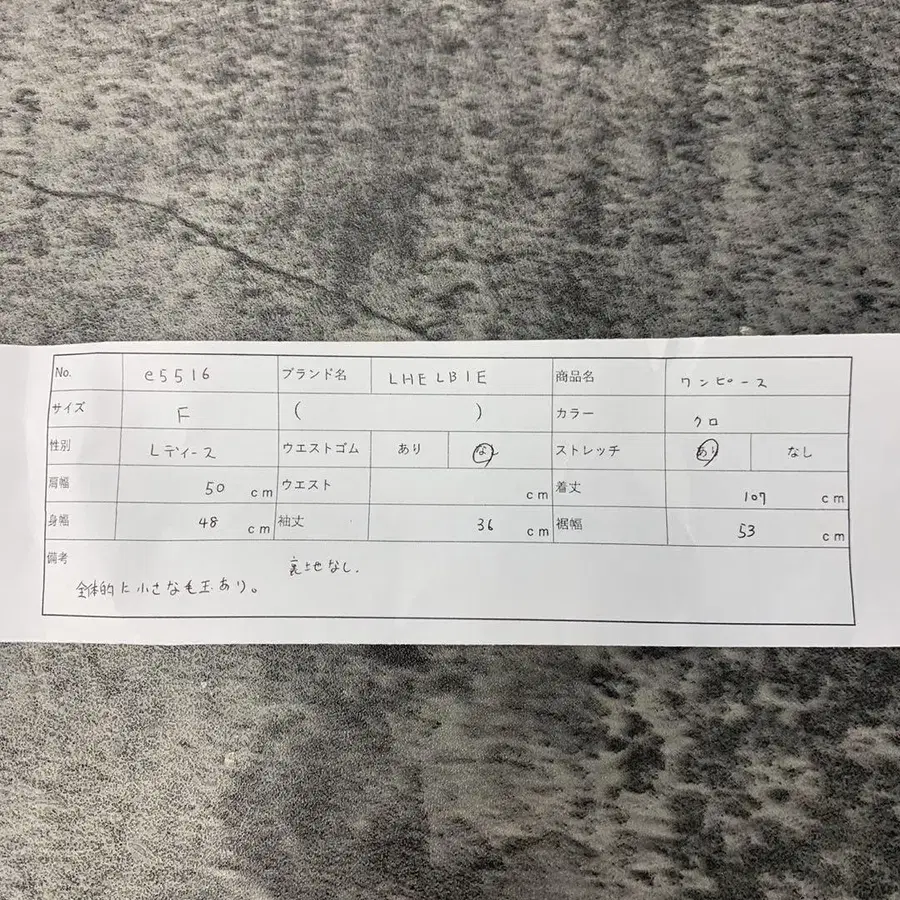 No. e5516 ブランド名 LHELBIE 商品名 ワンピース
サイズ F ( ) カラー クロ
性別 レディース ウエストゴム あり なし ストレッチ あり なし
肩幅 50 cm ウエスト cm 着丈 107 cm
身幅 48 cm 袖丈 36 cm 裾幅 53 cm
備考
裏地なし.
全体的に小さな毛玉あり。